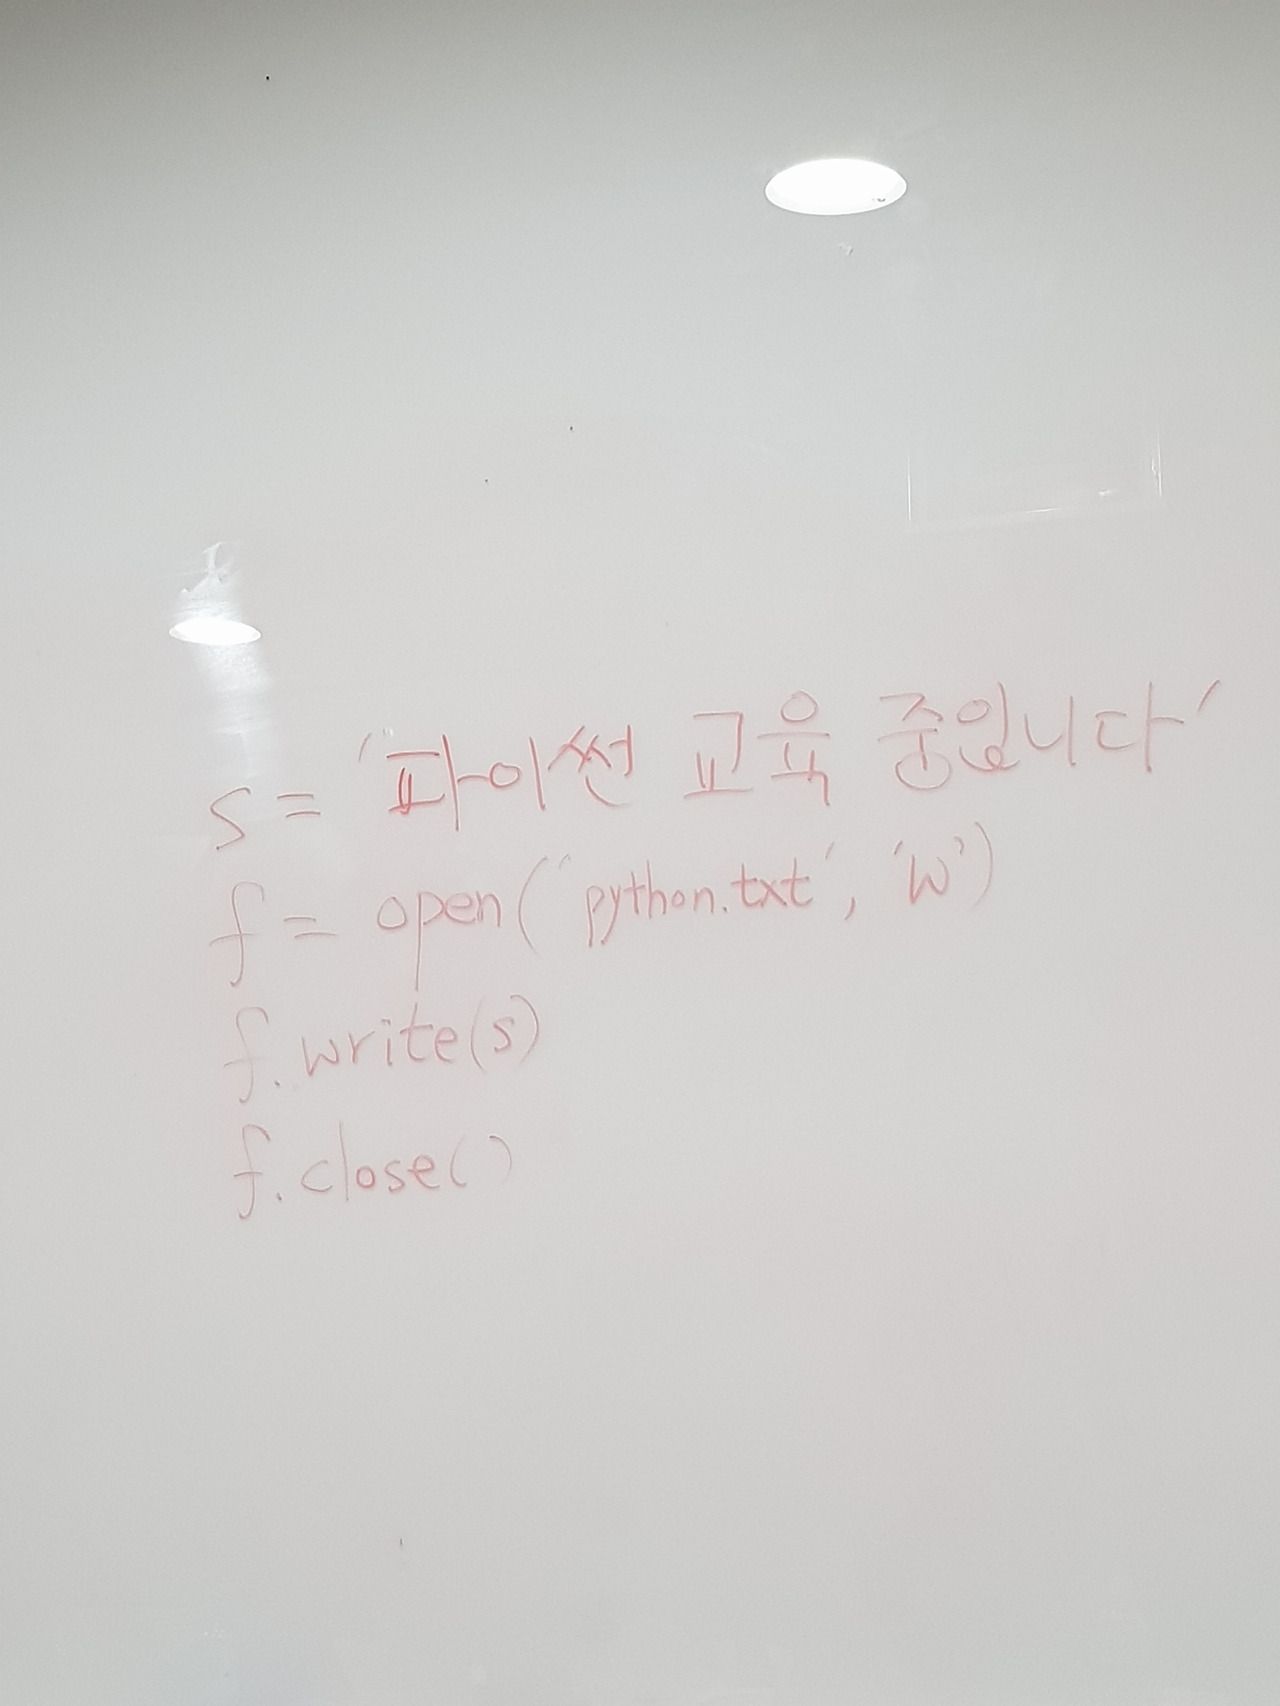 s = '파이썬 교육 중입니다'
f = open('python.txt', 'w')
f.write(s)
f.close()